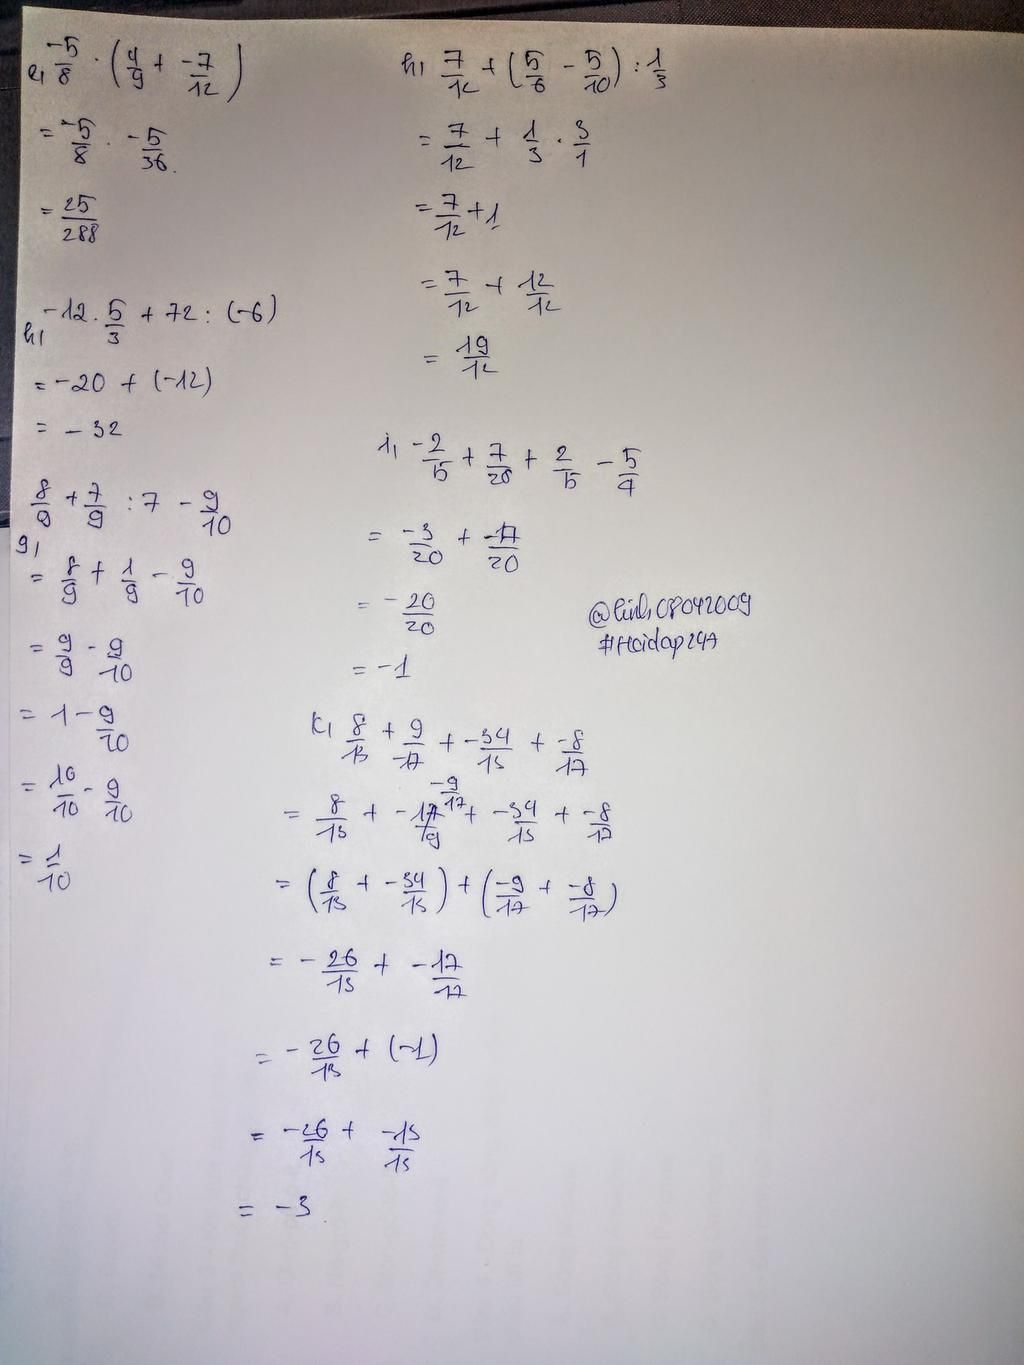 e, -5/8 . (4/9 + -7/12)
= -5/8 . -5/36
= 25/288
h, -12 . 5/3 + 72 : (-6)
= -20 + (-12)
= -32
g, 8/9 + 7/9 : 7 - 9/10
= 8/9 + 1/9 - 9/10
= 9/9 - 9/10
= 1 - 9/10
= 10/10 - 9/10
= 1/10
h, 7/12 + (5/6 - 5/10) : 1/3
= 7/12 + 1/3 . 3/1
= 7/12 + 1
= 7/12 + 12/12
= 19/12
i, -2/5 + 7/20 + 2/5 - 5/4
= -3/20 + -17/20
= -20/20
= -1
@linh08042009
#Hoidap247
K, 8/13 + 9/-17 + -34/13 + -8/17
= 8/13 + -9/17 + -34/13 + -8/17
= (8/13 + -34/13) + (-9/17 + -8/17)
= -26/13 + -17/17
= -26/13 + (-1)
= -26/13 + -13/13
= -3